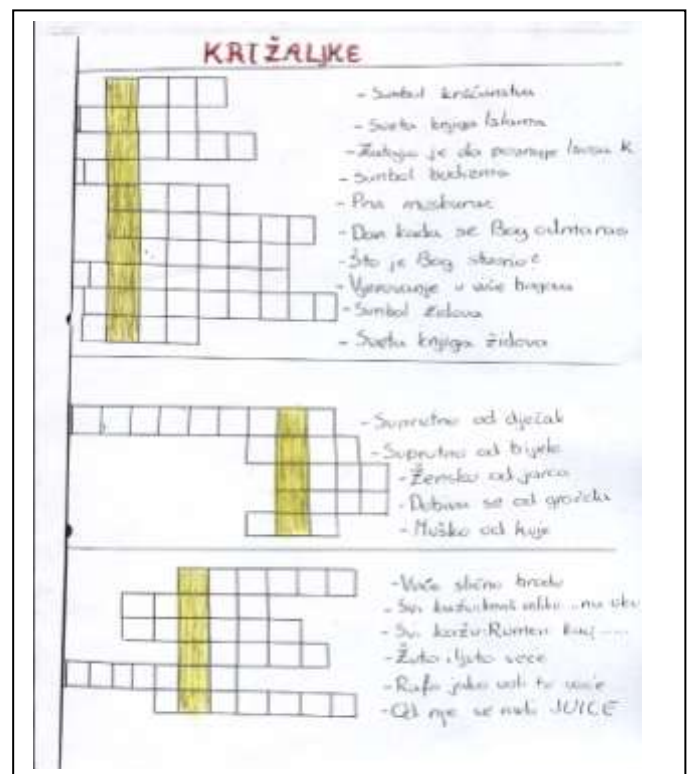 KRIŽALJKE
- Simbol kršćanstva
- Sveta knjiga Islama
- Zadaja je da poznaje Isusa K
- Simbol budizma
- Prvi muškarac
- Dan kada se Bog odmarao
- Što je Bog stvorio?
- Vjerovanje u više bogova
- Simbol židova
- Sveta knjiga židova
- Suprotno od dječak
- Suprotno od bijelo
- Žensko od jarca
- Dobiva se od grožđa
- Muško od kuje
- Voće slično brodu
- Svi kažu: imaš veliku ... na oku
- Svi kažu: Rumen kao .....
- Žuto ljuto voće
- Rafo jako voli to voće
- Od nje se radi JUICE